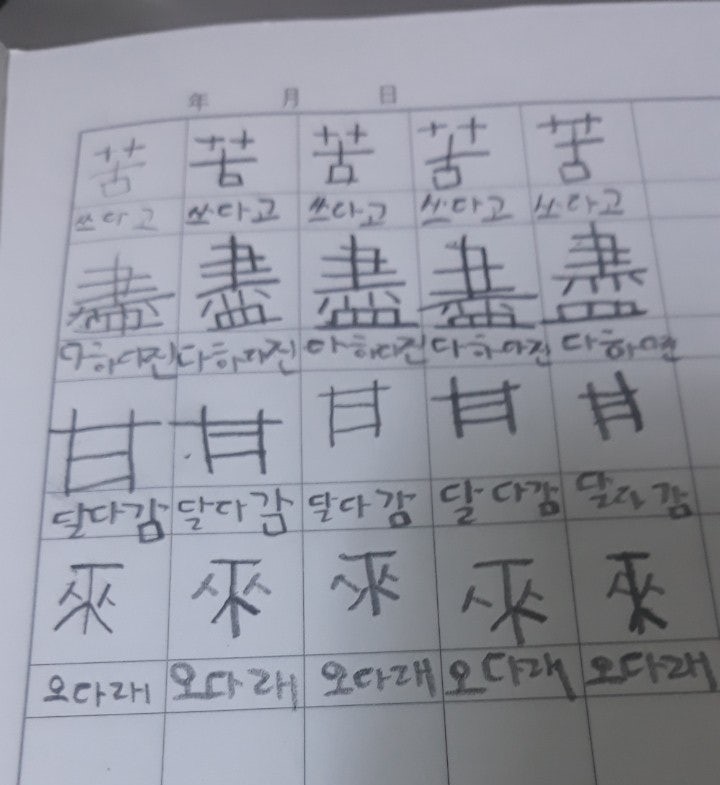 年 月 日
苦 苦 苦 苦 苦
쓰다고 쓰다고 쓰다고 쓰다고 쓰다고
盡 盡 盡 盡 盡
다하다진 다하다진 다하다진 다하다진 다하
甘 甘 甘 甘 甘
달다감 달다감 달다감 달다감 달다감
來 來 來 來 來
오다래 오다래 오다래 오다래 오다래